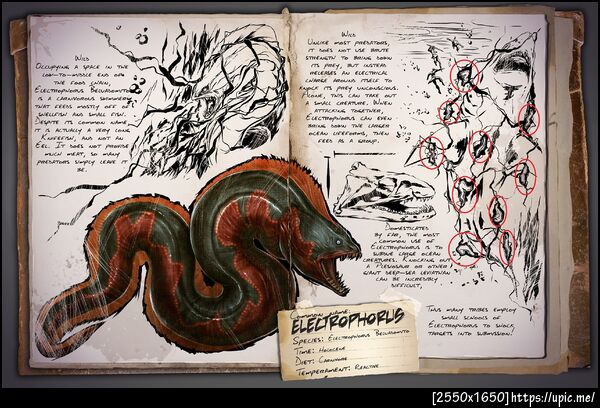 Wild
Occupying a space in the
low-to-middle end of
the food chain,
Electrophorus Beluadomito
is a carnivorous swimmer
that feeds mostly off of
shellfish and small fish.
Despite its common name
it is actually a very long
Knifefish, and not an
Eel. It does not provide
much meat, so many
predators simply leave it
be.
Wild
Unlike most predators,
it does not use brute
strength to bring down
its prey, but instead
releases an electrical
charge around itself to
knock its prey unconscious.
Alone, this can take out
a small creature. When
attacking together,
Electrophorus can even
bring down the larger
ocean lifeforms, then
feed as a group.
Domesticated
By far, the most
common use of
Electrophorus is to
subdue large ocean
creatures. Knocking out
a Plesiosaur or other
giant deep-sea leviathan
can be incredibly
difficult,
Thus many tribes employ
small schools of
Electrophorus to shock
targets into submission!
Common name:
ELECTROPHORUS
Species: Electrophorus Beluadomito
Time: Holocene
Diet: Carnivore
Temperament: Reactive
[2550x1650]https://upic.me/